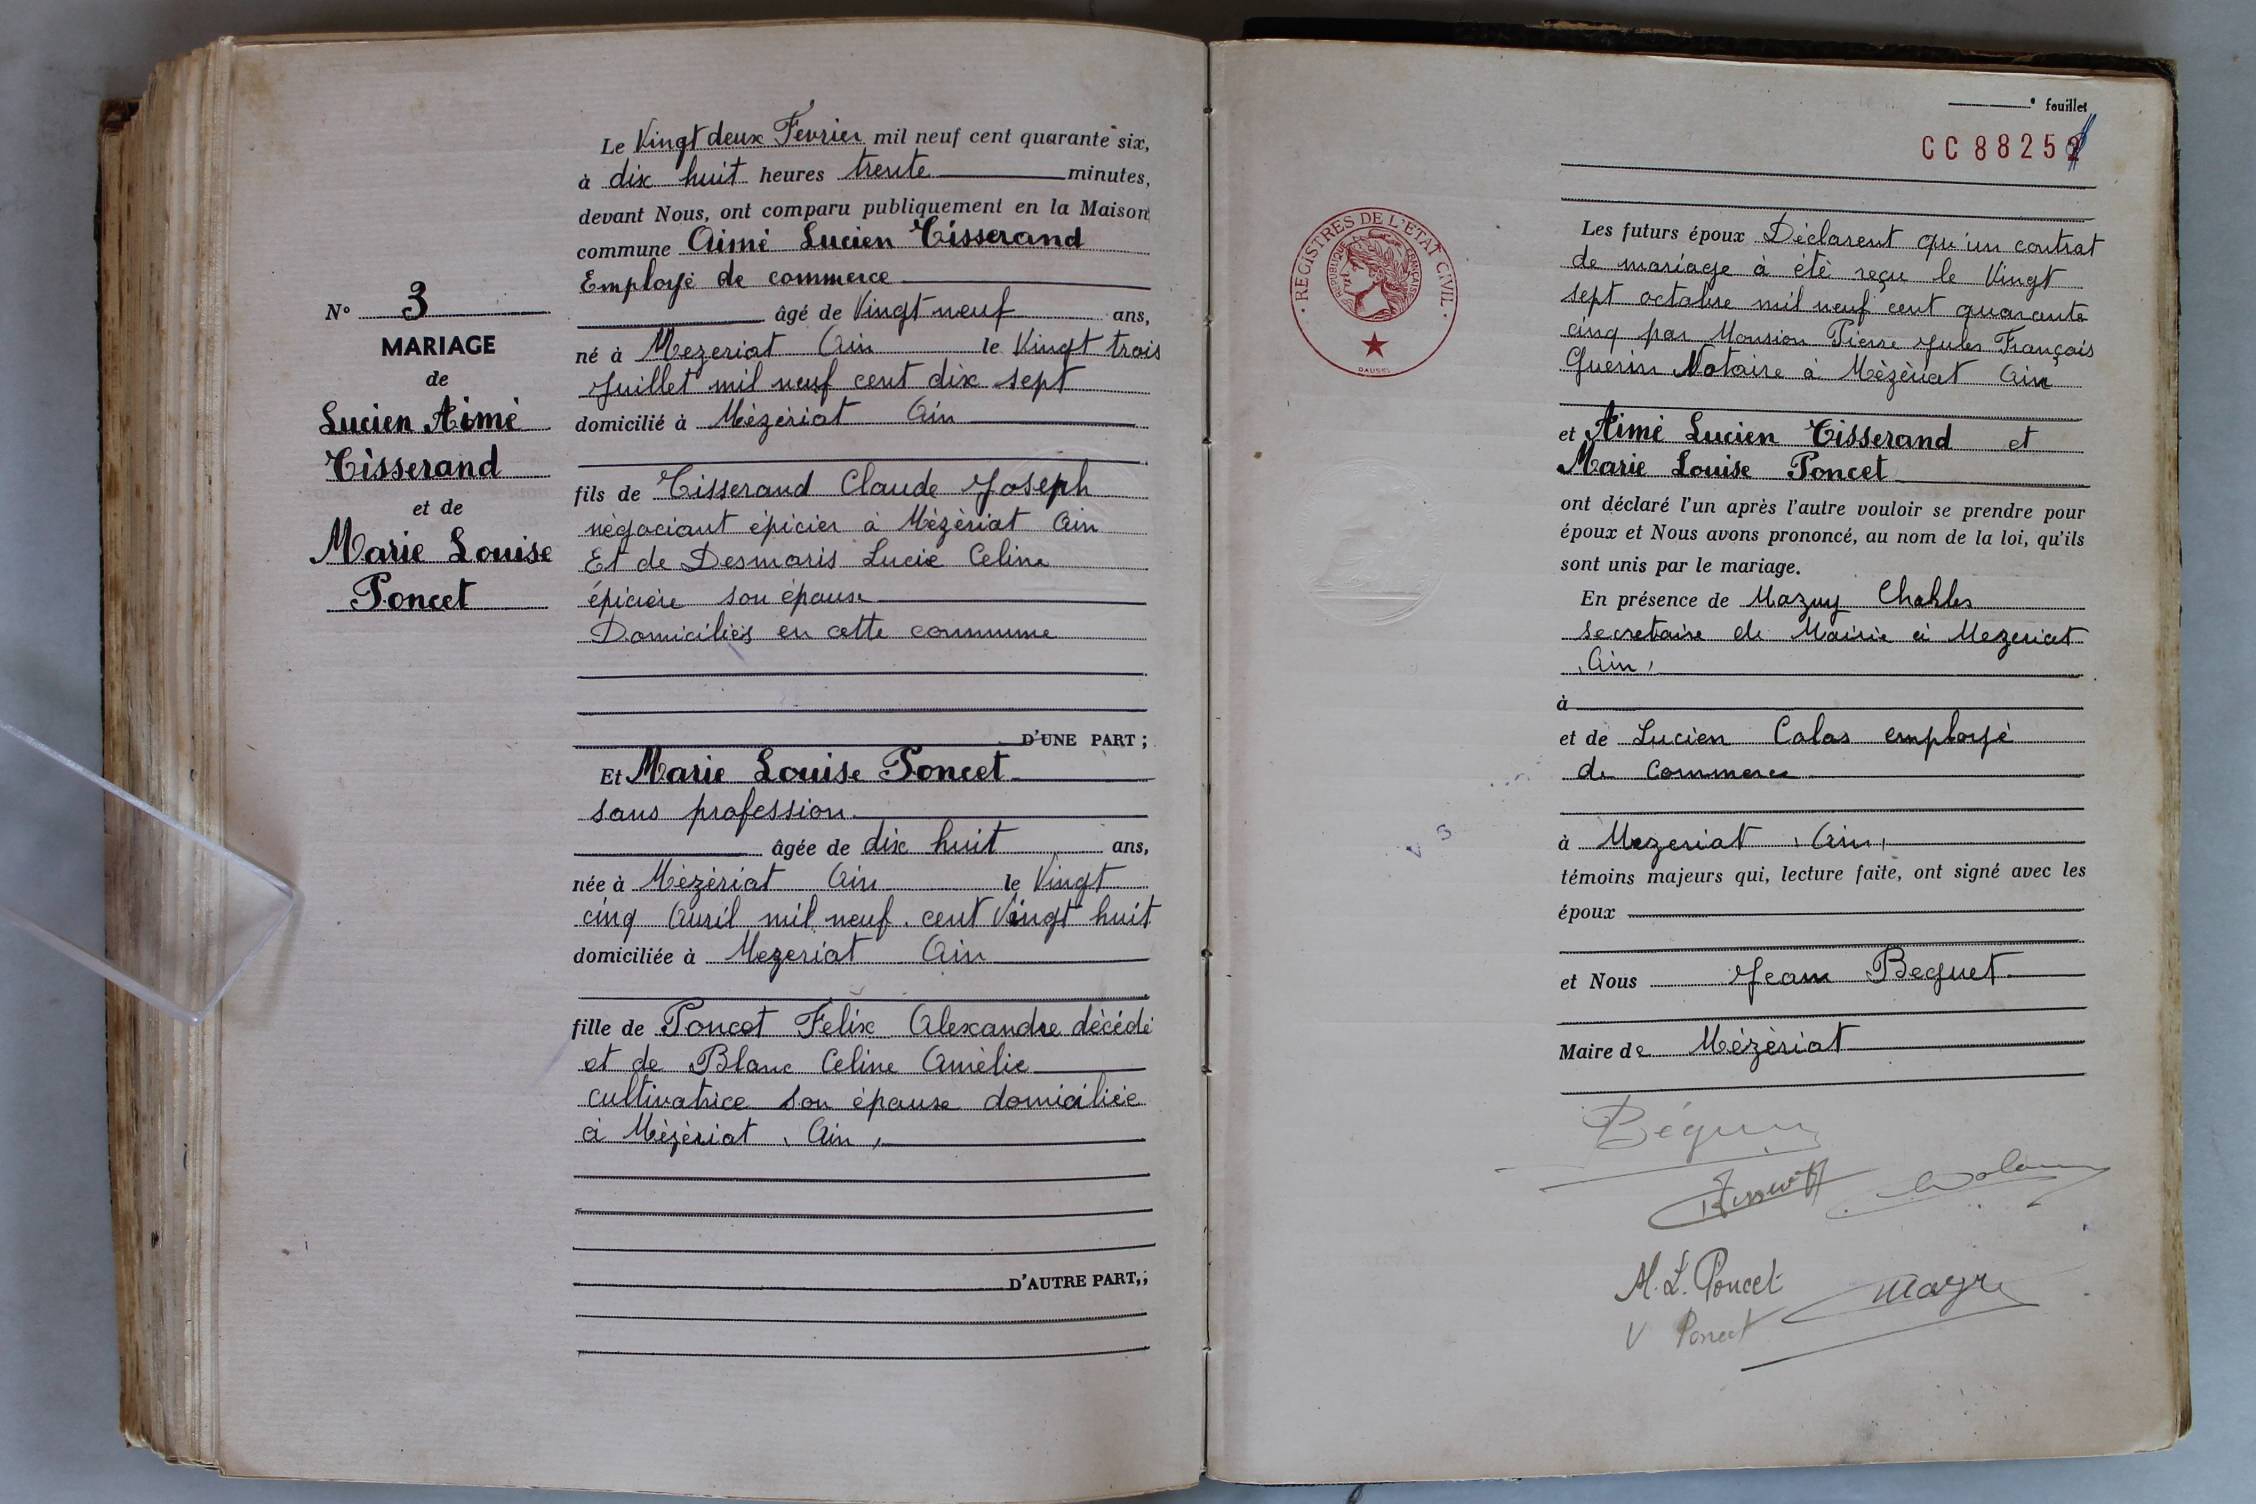 Le Vingt deux Fevrier mil neuf cent quarante six,
à dix huit heures trente minutes,
devant Nous, ont comparu publiquement en la Maison
commune Aimé Lucien Tisserand
Employé de commerce
âgé de Vingt neuf ans,
né à Mezeriat Ain le Vingt trois
Juillet mil neuf cent dix sept
domicilié à Mézériat Ain
fils de Tisserand Claude Joseph
négociant épicier à Mézériat Ain
Et de Desmaris Lucie Celine
épicière son épouse
Domiciliés en cette commune
D'UNE PART ;
N° 3
MARIAGE
de
Lucien Aimé
Tisserand
et de
Marie Louise
Poncet
Et Marie Louise Poncet
sans profession
âgée de dix huit ans,
née à Mézériat Ain le Vingt
cinq Avril mil neuf cent Vingt huit
domiciliée à Mezeriat Ain
fille de Poncet Felix Alexandre décédé
et de Blanc Celine Amélie
cultivatrice son épouse domiciliée
à Mézériat Ain
D'AUTRE PART,;
fouillet
CC 8825
REGISTRES DE L'ETAT CIVIL
REPUBLIQUE FRANÇAISE
DAUSSY
Les futurs époux Déclarent qu'un contrat
de mariage à été reçu le Vingt
sept octobre mil neuf cent quarante
cinq par Monsion Pierre Jules François
Guerin Notaire à Mézériat Ain
et Aimé Lucien Tisserand et
Marie Louise Poncet
ont déclaré l'un après l'autre vouloir se prendre pour
époux et Nous avons prononcé, au nom de la loi, qu'ils
sont unis par le mariage.
En présence de Mazuy Chahles
secretaire de Mairie à Mezeriat
Ain
à
et de Lucien Calas employé
de commerce
à Mezeriat Ain
témoins majeurs qui, lecture faite, ont signé avec les
époux
et Nous Jean Beguet
Maire de Mézériat
M. L. Poncet
V Poncet